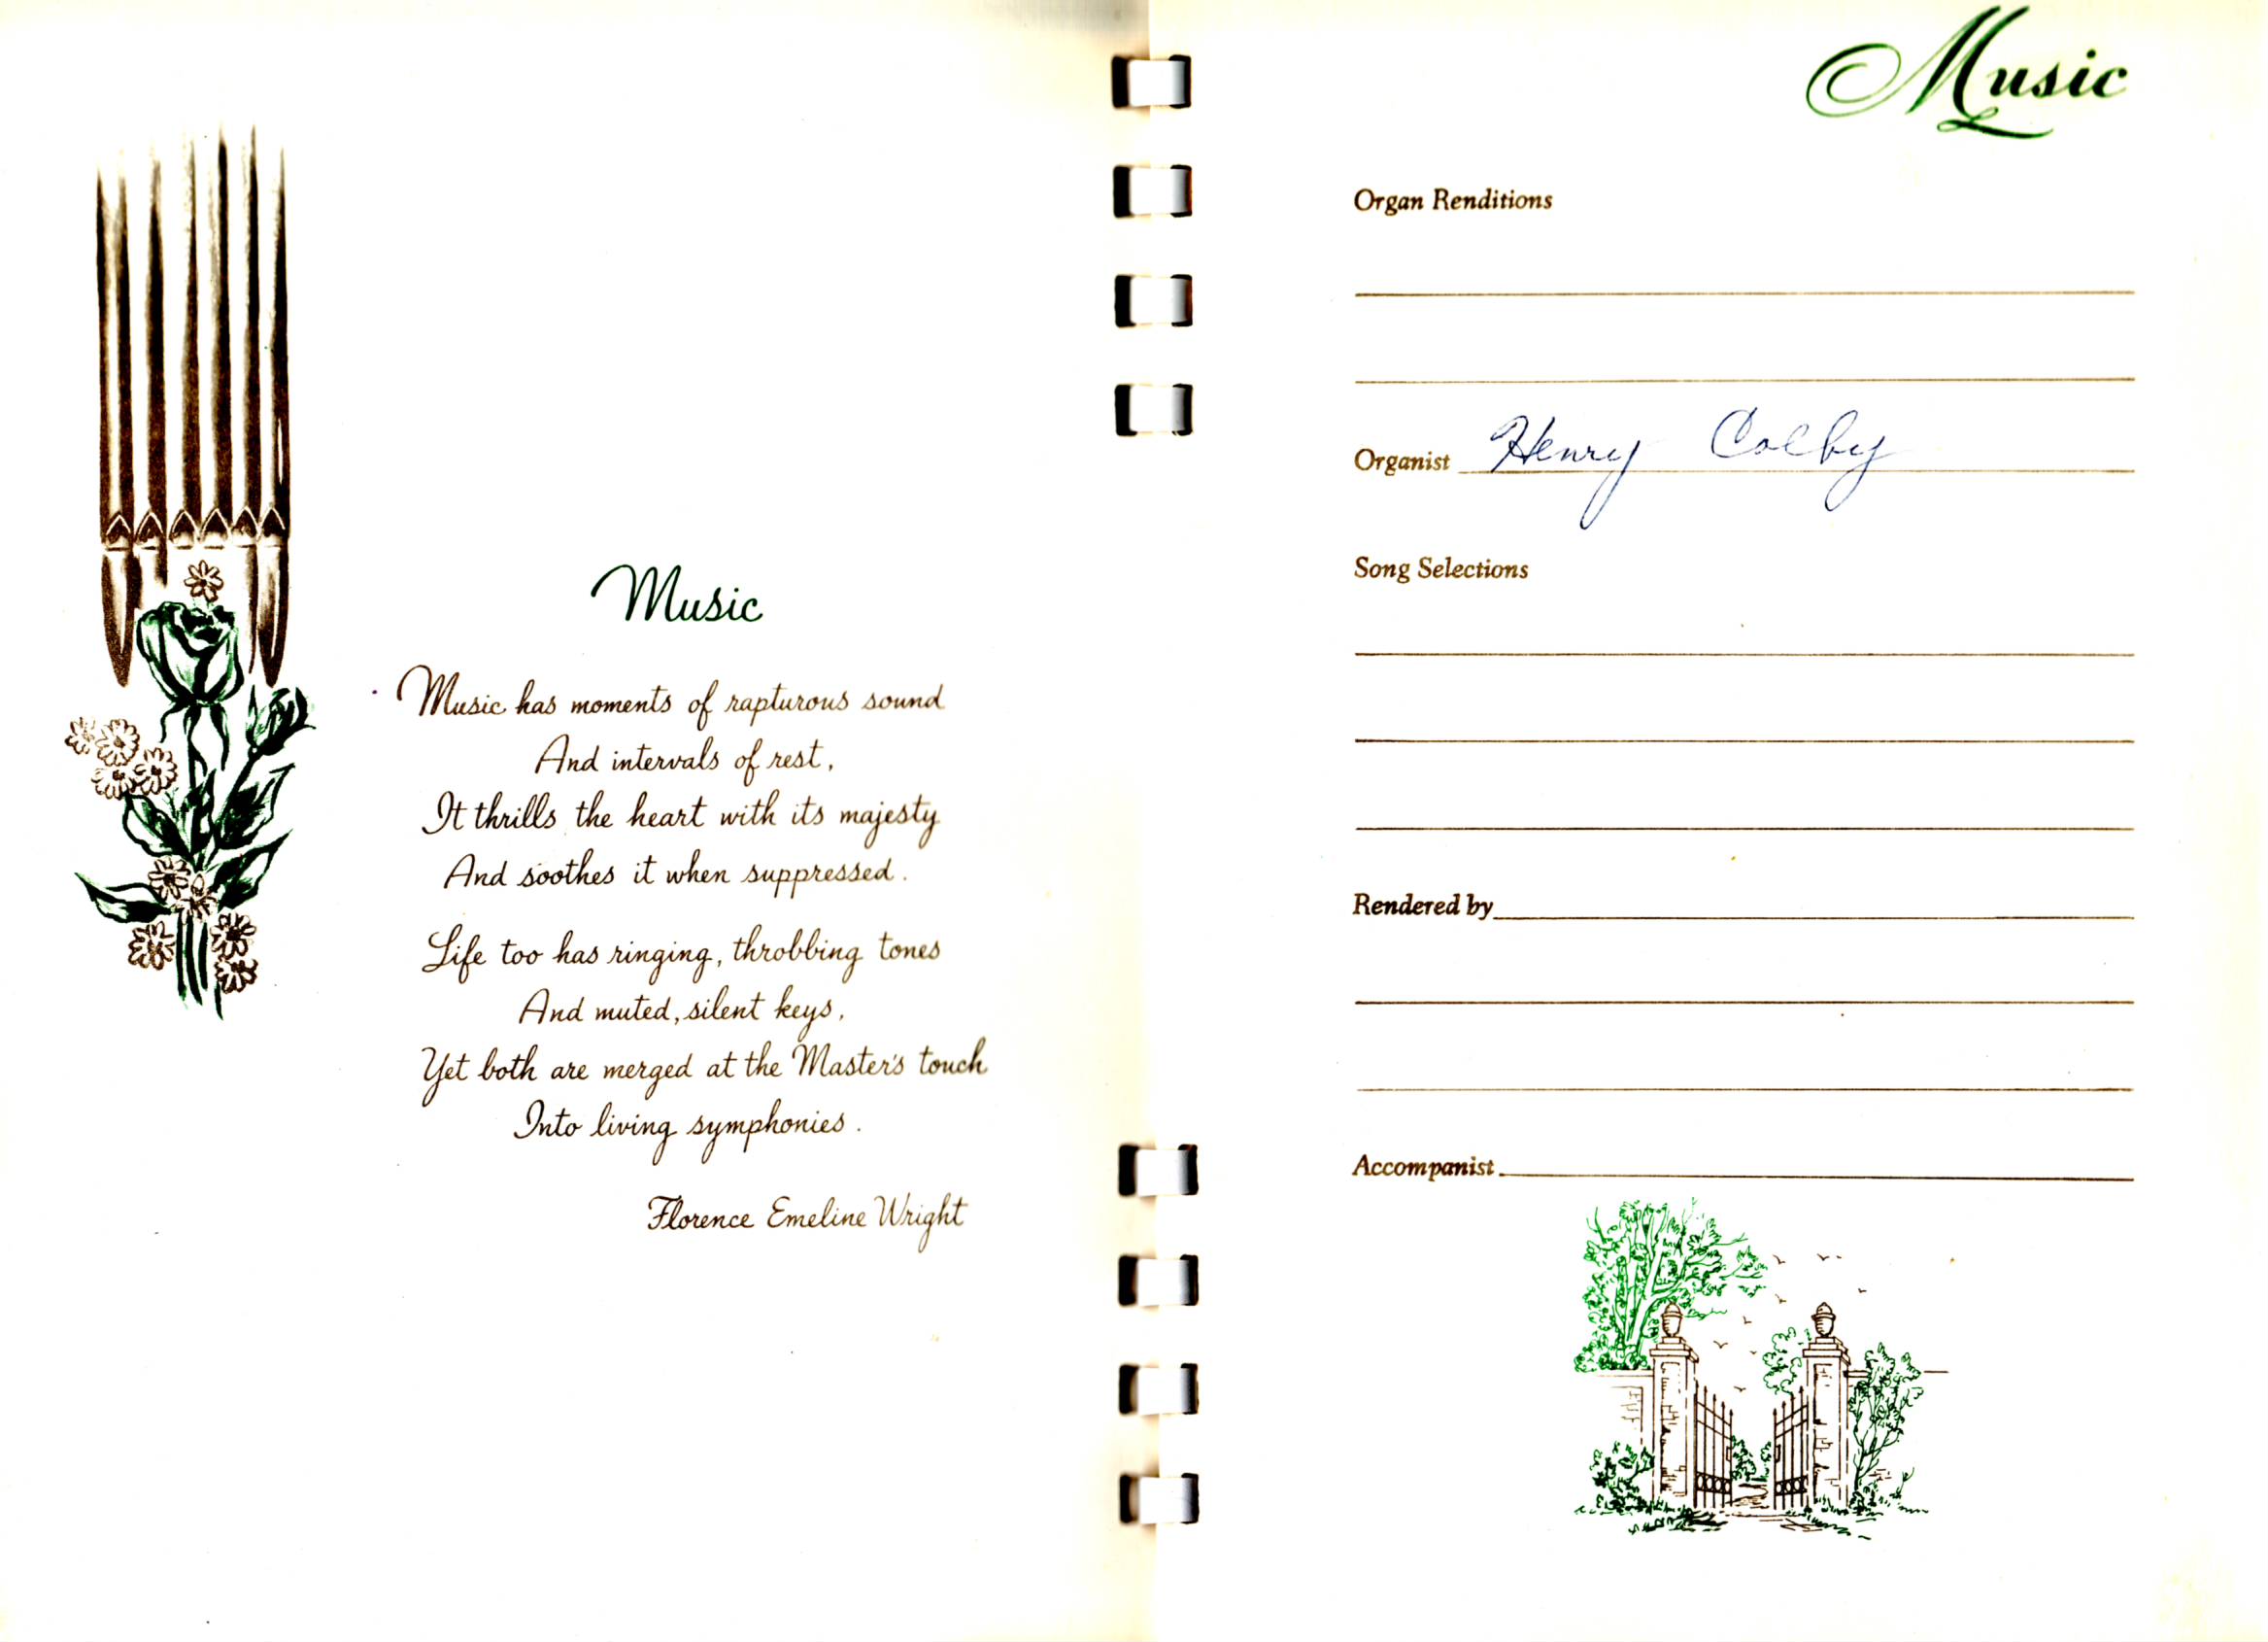 Music
Music has moments of rapturous sound
And intervals of rest,
It thrills the heart with its majesty
And soothes it when suppressed.
Life too has ringing, throbbing tones
And muted, silent keys,
Yet both are merged at the Master's touch
Into living symphonies.
Florence Emeline Wright
Music
Organ Renditions
Organist Henry Colby
Song Selections
Rendered by
Accompanist